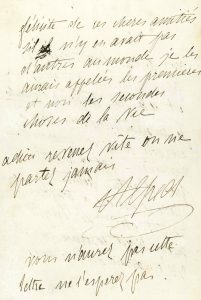 félicité de ces chères amitiés
s'il n'y en avait pas
d'autres au monde je les
aurais appelées les premières
et non les secondes
choses de la vie
adieu revenez vite ou ne
partez jamais
vous n'aurez pas cette
lettre ne l'espérez pas.